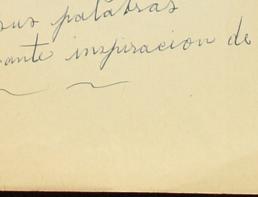 sus palabras
ante inspiracion de